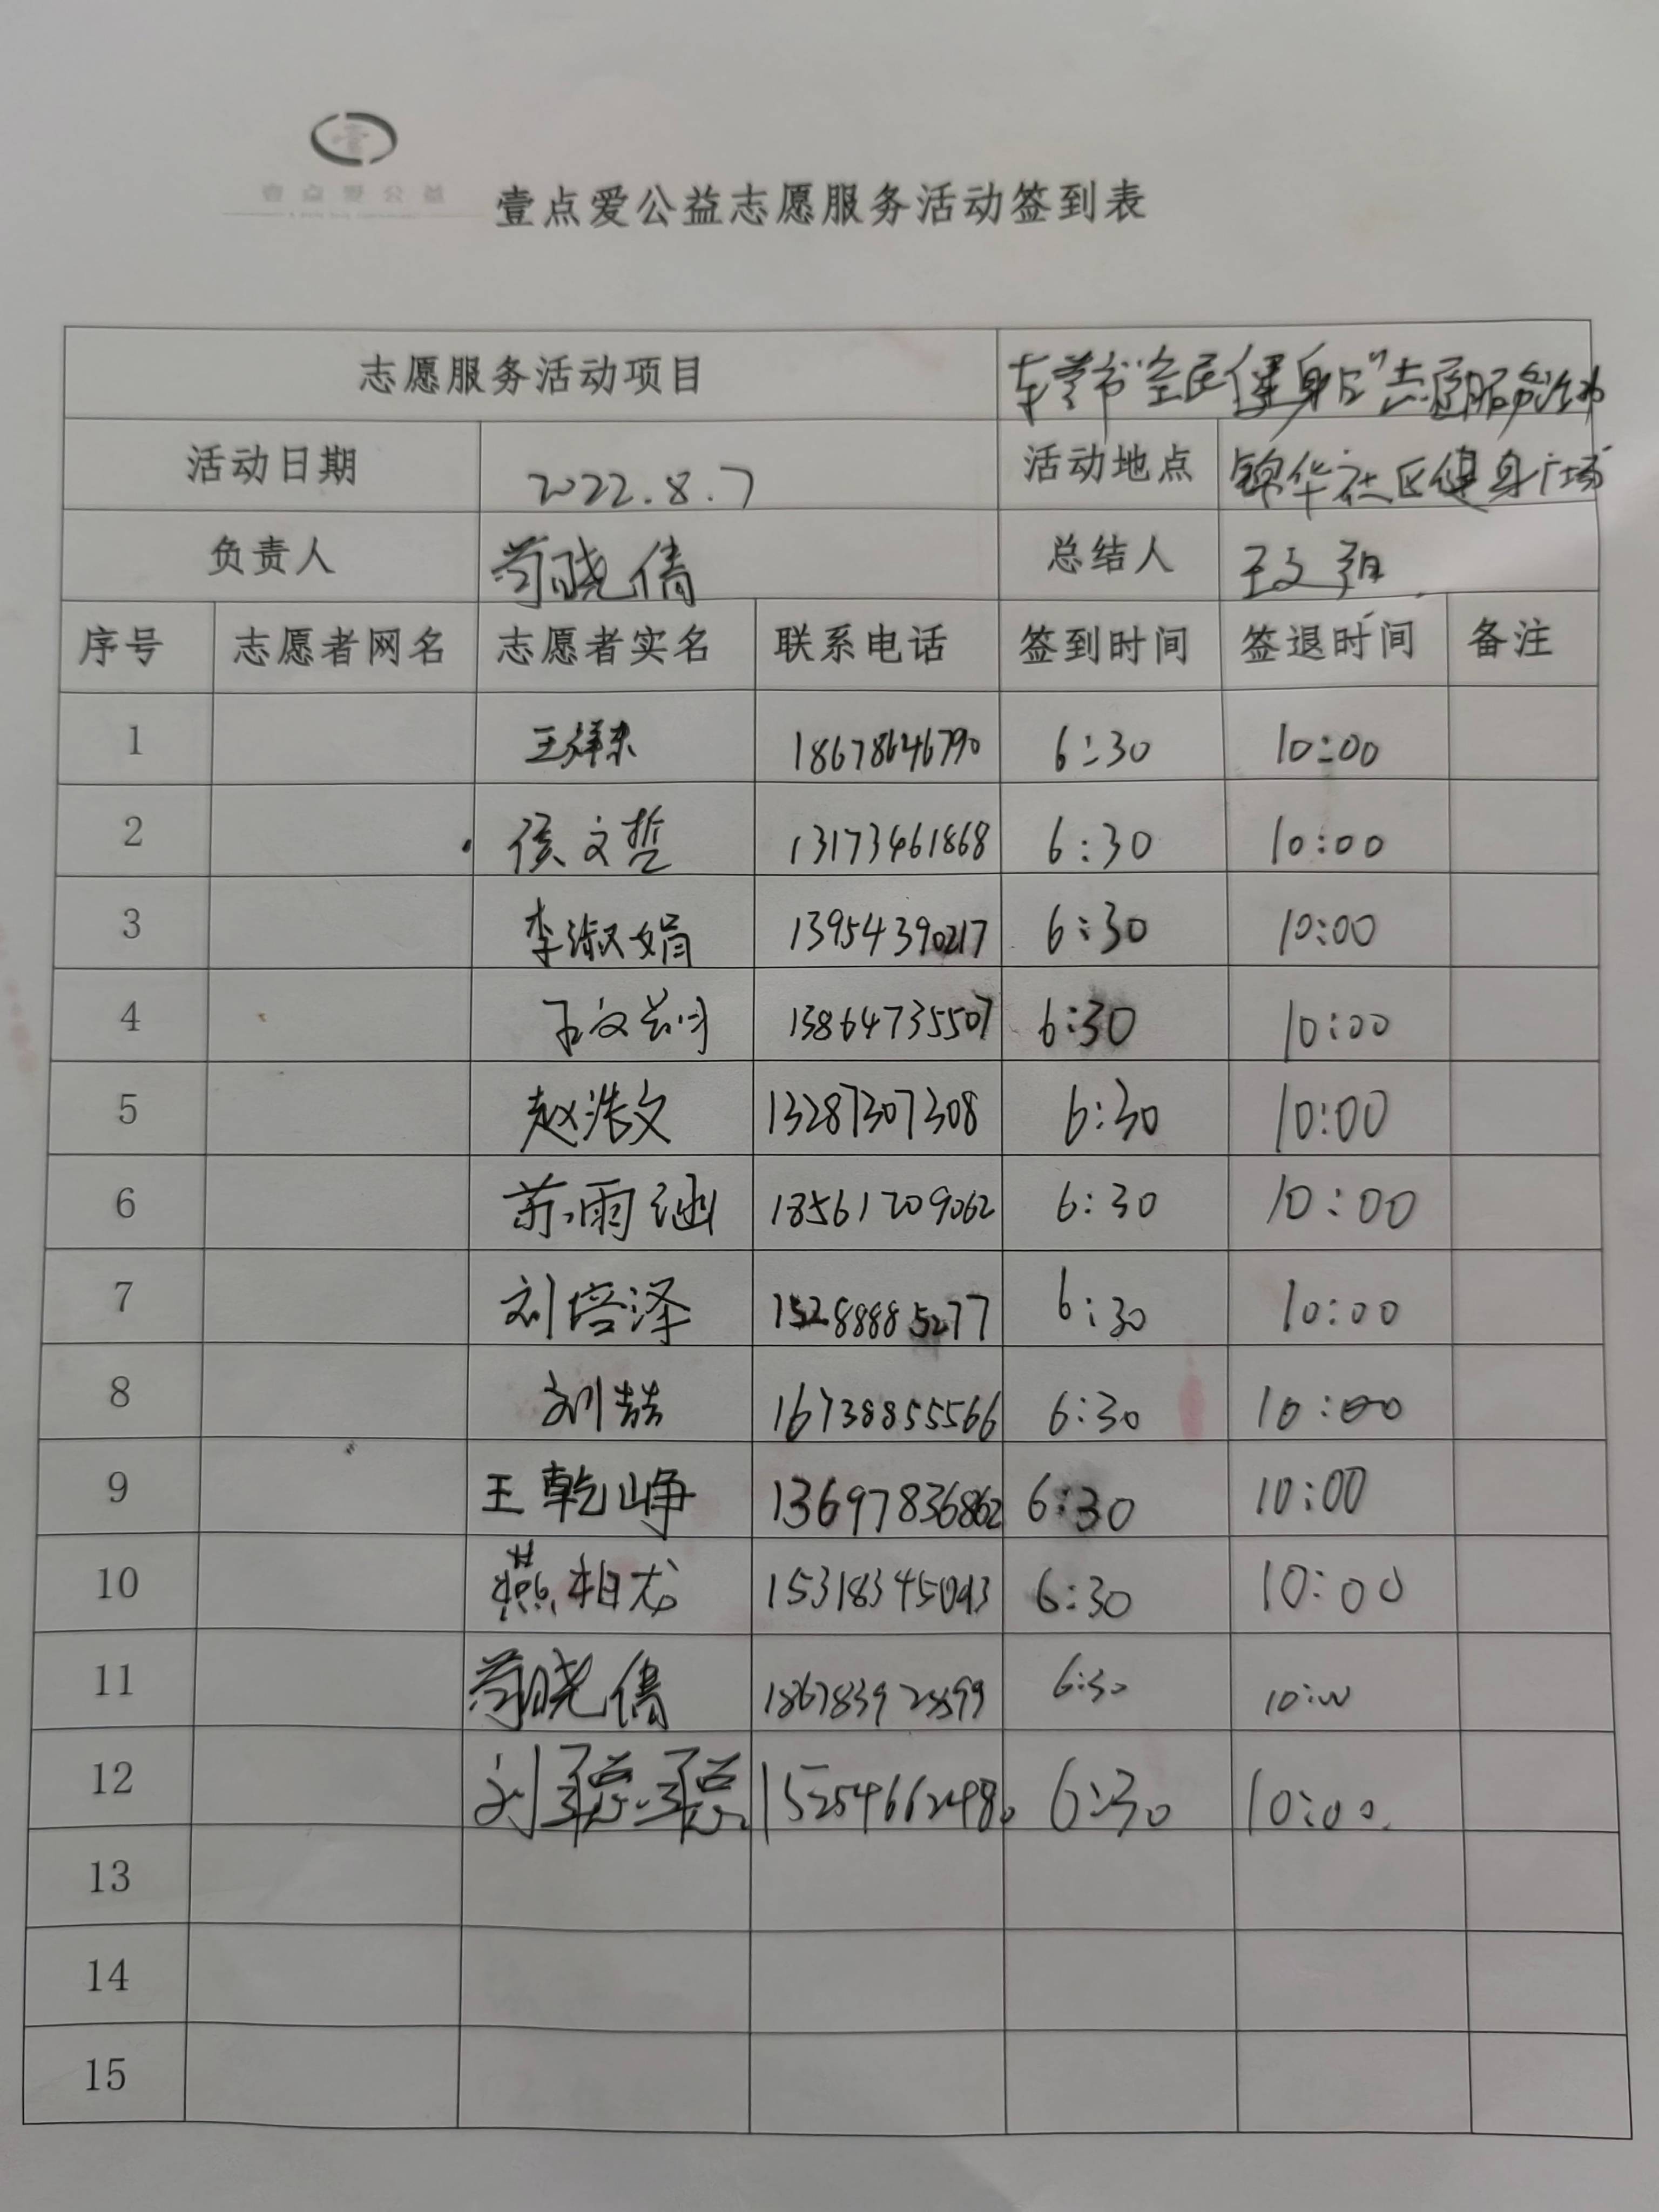 壹点爱公益
壹点爱公益志愿服务活动签到表
志愿服务活动项目 东营市"全民健身日"志愿服务活动
活动日期 2022.8.7 活动地点 锦华社区健身广场
负责人 苟晓倩 总结人 王文翔
序号 志愿者网名 志愿者实名 联系电话 签到时间 签退时间 备注
1 王祥东 18678646790 6:30 10:00
2 侯文哲 13173461868 6:30 10:00
3 李淑娟 13954390217 6:30 10:00
4 王文 13864735507 6:30 10:00
5 赵浩文 13287307308 6:30 10:00
6 苏雨涵 18561209062 6:30 10:00
7 刘培泽 15288885277 6:30 10:00
8 刘喆 16738855566 6:30 10:00
9 王乾峥 13697836862 6:30 10:00
10 燕柏龙 6:30 10:00
11 苟晓倩 6:30 10:00
12 刘聪聪 15254662480 6:30 10:00.
13
14
15